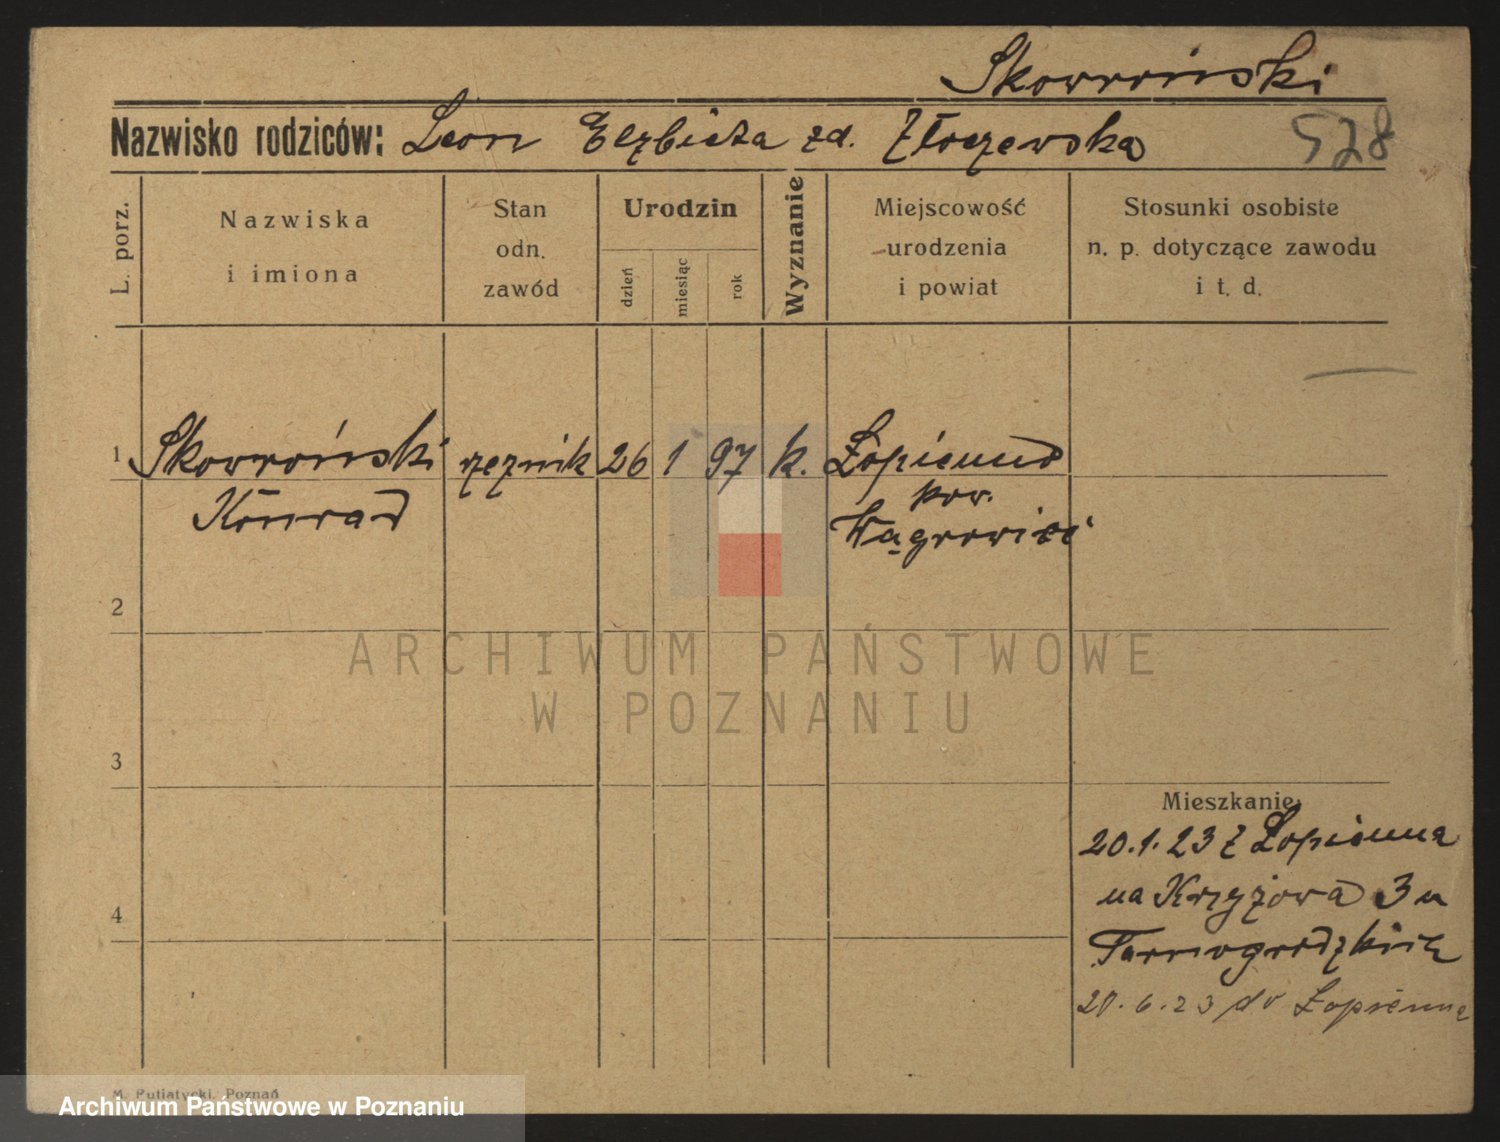 Skowroński
Nazwisko rodziców: Leon Elżbieta zd. Złoczewska 578
L. porz.
Nazwiska
i imiona
Stan
odn.
zawód
Urodzin
dzień
miesiąc
rok
Wyznanie
Miejscowość
urodzenia
i powiat
Stosunki osobiste
n. p. dotyczące zawodu
i t. d.
1 Skowroński rzeźnik 26 1 97 k. Łopienno
Konrad
pow.
Wągrowiec
2
3
4
Mieszkanie
20.1.23 z Łopienna
na Krzyżowa 3 u
6.23 do Łopienna
M. Putiatycki, Poznań
ARCHIWUM PAŃSTWOWE
W POZNANIU
Archiwum Państwowe w Poznaniu